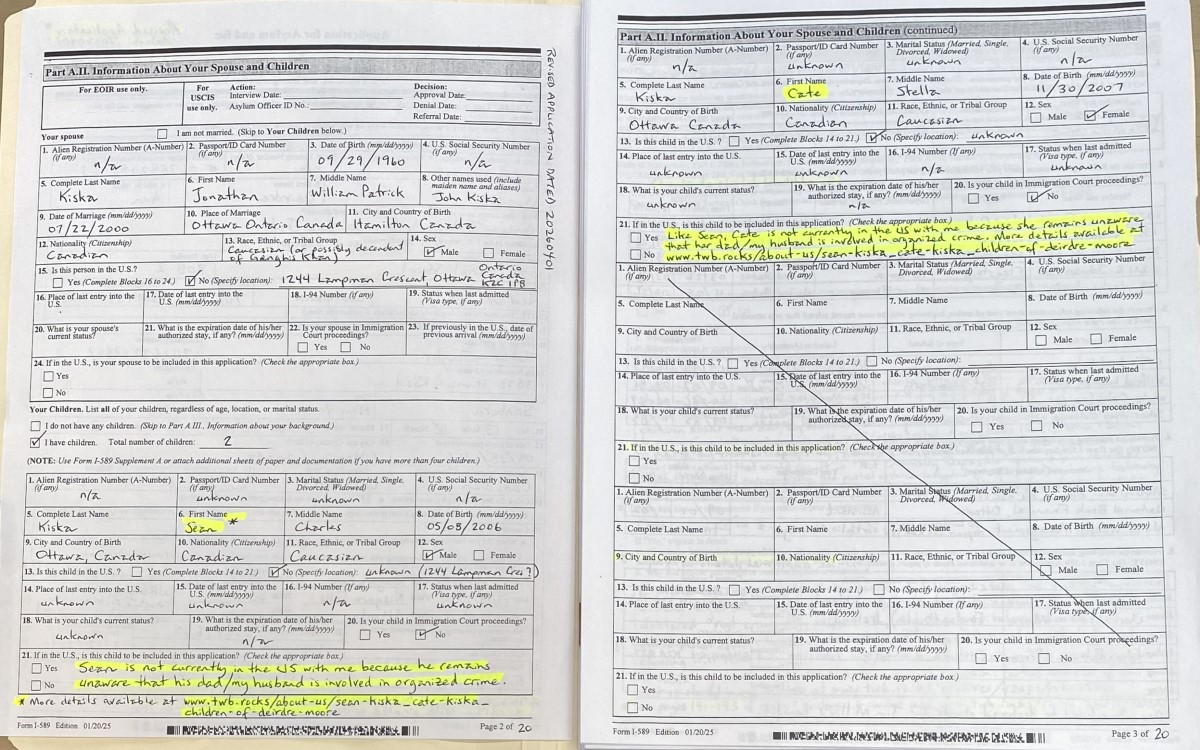 Part A.II. Information About Your Spouse and Children
For EOIR use only.
For USCIS use only.
Action:
Interview Date:
Asylum Officer ID No.:
Decision:
Approval Date:
Denial Date:
Referral Date:
REVISED APPLICATION DATED 20260401
Your spouse
I am not married. (Skip to Your Children below.)
1. Alien Registration Number (A-Number) (if any)
n/a
2. Passport/ID Card Number (if any)
n/a
3. Date of Birth (mm/dd/yyyy)
09/29/1960
4. U.S. Social Security Number (if any)
n/a
5. Complete Last Name
Kiska
6. First Name
Jonathan
7. Middle Name
William Patrick
8. Other names used (include maiden name and aliases)
John Kiska
9. Date of Marriage (mm/dd/yyyy)
07/22/2000
10. Place of Marriage
Ottawa Ontario Canada
11. City and Country of Birth
Hamilton Canada
12. Nationality (Citizenship)
Canadian
13. Race, Ethnic, or Tribal Group
Caucasian (or possibly decendent
of Genghis Khan)
14. Sex
Male Female
15. Is this person in the U.S.?
Yes (Complete Blocks 16 to 24.) No (Specify location): 1244 Lampman Crescent, Ottawa Ontario Canada K2C 1P8
16. Place of last entry into the U.S.
17. Date of last entry into the U.S. (mm/dd/yyyy)
18. I-94 Number (if any)
19. Status when last admitted (Visa type, if any)
20. What is your spouse's current status?
21. What is the expiration date of his/her authorized stay, if any? (mm/dd/yyyy)
22. Is your spouse in Immigration Court proceedings?
Yes No
23. If previously in the U.S., date of previous arrival (mm/dd/yyyy)
24. If in the U.S., is your spouse to be included in this application? (Check the appropriate box.)
Yes
No
Your Children. List all of your children, regardless of age, location, or marital status.
I do not have any children. (Skip to Part A.III., Information about your background.)
I have children. Total number of children: 2
(NOTE: Use Form I-589 Supplement A or attach additional sheets of paper and documentation if you have more than four children.)
1. Alien Registration Number (A-Number) (if any)
n/a
2. Passport/ID Card Number (if any)
unknown
3. Marital Status (Married, Single, Divorced, Widowed)
unknown
4. U.S. Social Security Number (if any)
n/a
5. Complete Last Name
Kiska
6. First Name
Sean *
7. Middle Name
Charles
8. Date of Birth (mm/dd/yyyy)
05/08/2006
9. City and Country of Birth
Ottawa, Canada
10. Nationality (Citizenship)
Canadian
11. Race, Ethnic, or Tribal Group
Caucasian
12. Sex
Male Female
13. Is this child in the U.S. ? Yes (Complete Blocks 14 to 21.) No (Specify location): unknown (1244 Lampman Cres?)
14. Place of last entry into the U.S.
unknown
15. Date of last entry into the U.S. (mm/dd/yyyy)
unknown
16. I-94 Number (If any)
n/a
17. Status when last admitted (Visa type, if any)
unknown
18. What is your child's current status?
unknown
19. What is the expiration date of his/her authorized stay, if any? (mm/dd/yyyy)
n/a
20. Is your child in Immigration Court proceedings?
Yes No
21. If in the U.S., is this child to be included in this application? (Check the appropriate box.)
Yes
No
Sean is not currently in the US with me because he remains
unaware that his dad/my husband is involved in organized crime.
* More details available at www.twb.rocks/about-us/sean-kiska_cate-kiska_
children-of-deirdre-moore
Form I-589 Edition 01/20/25
Page 2 of 20
Part A.II. Information About Your Spouse and Children (continued)
1. Alien Registration Number (A-Number) (if any)
n/a
2. Passport/ID Card Number (if any)
unknown
3. Marital Status (Married, Single, Divorced, Widowed)
unknown
4. U.S. Social Security Number (if any)
n/a
5. Complete Last Name
Kiska
6. First Name
Cate
7. Middle Name
Stella
8. Date of Birth (mm/dd/yyyy)
11/30/2007
9. City and Country of Birth
Ottawa Canada
10. Nationality (Citizenship)
Canadian
11. Race, Ethnic, or Tribal Group
Caucasian
12. Sex
Male Female
13. Is this child in the U.S. ? Yes (Complete Blocks 14 to 21.) No (Specify location): unknown
14. Place of last entry into the U.S.
unknown
15. Date of last entry into the U.S. (mm/dd/yyyy)
unknown
16. I-94 Number (If any)
n/a
17. Status when last admitted (Visa type, if any)
unknown
18. What is your child's current status?
unknown
19. What is the expiration date of his/her authorized stay, if any? (mm/dd/yyyy)
n/a
20. Is your child in Immigration Court proceedings?
Yes No
21. If in the U.S., is this child to be included in this application? (Check the appropriate box.)
Yes
No
Like Sean, Cate is not currently in the US with me because she remains unaware
that her dad/my husband is involved in organized crime. More details available at
www.twb.rocks/about-us/sean-kiska_cate-kiska_children-of-deirdre-moore
1. Alien Registration Number (A-Number) (if any)
2. Passport/ID Card Number (if any)
3. Marital Status (Married, Single, Divorced, Widowed)
4. U.S. Social Security Number (if any)
5. Complete Last Name
6. First Name
7. Middle Name
8. Date of Birth (mm/dd/yyyy)
9. City and Country of Birth
10. Nationality (Citizenship)
11. Race, Ethnic, or Tribal Group
12. Sex
Male Female
13. Is this child in the U.S. ? Yes (Complete Blocks 14 to 21.) No (Specify location):
14. Place of last entry into the U.S.
15. Date of last entry into the U.S. (mm/dd/yyyy)
16. I-94 Number (If any)
17. Status when last admitted (Visa type, if any)
18. What is your child's current status?
19. What is the expiration date of his/her authorized stay, if any? (mm/dd/yyyy)
20. Is your child in Immigration Court proceedings?
Yes No
21. If in the U.S., is this child to be included in this application? (Check the appropriate box.)
Yes
No
1. Alien Registration Number (A-Number) (if any)
2. Passport/ID Card Number (if any)
3. Marital Status (Married, Single, Divorced, Widowed)
4. U.S. Social Security Number (if any)
5. Complete Last Name
6. First Name
7. Middle Name
8. Date of Birth (mm/dd/yyyy)
9. City and Country of Birth
10. Nationality (Citizenship)
11. Race, Ethnic, or Tribal Group
12. Sex
Male Female
13. Is this child in the U.S. ? Yes (Complete Blocks 14 to 21.) No (Specify location):
14. Place of last entry into the U.S.
15. Date of last entry into the U.S. (mm/dd/yyyy)
16. I-94 Number (If any)
17. Status when last admitted (Visa type, if any)
18. What is your child's current status?
19. What is the expiration date of his/her authorized stay, if any? (mm/dd/yyyy)
20. Is your child in Immigration Court proceedings?
Yes No
21. If in the U.S., is this child to be included in this application? (Check the appropriate box.)
Yes
No
Form I-589 Edition 01/20/25
Page 3 of 20